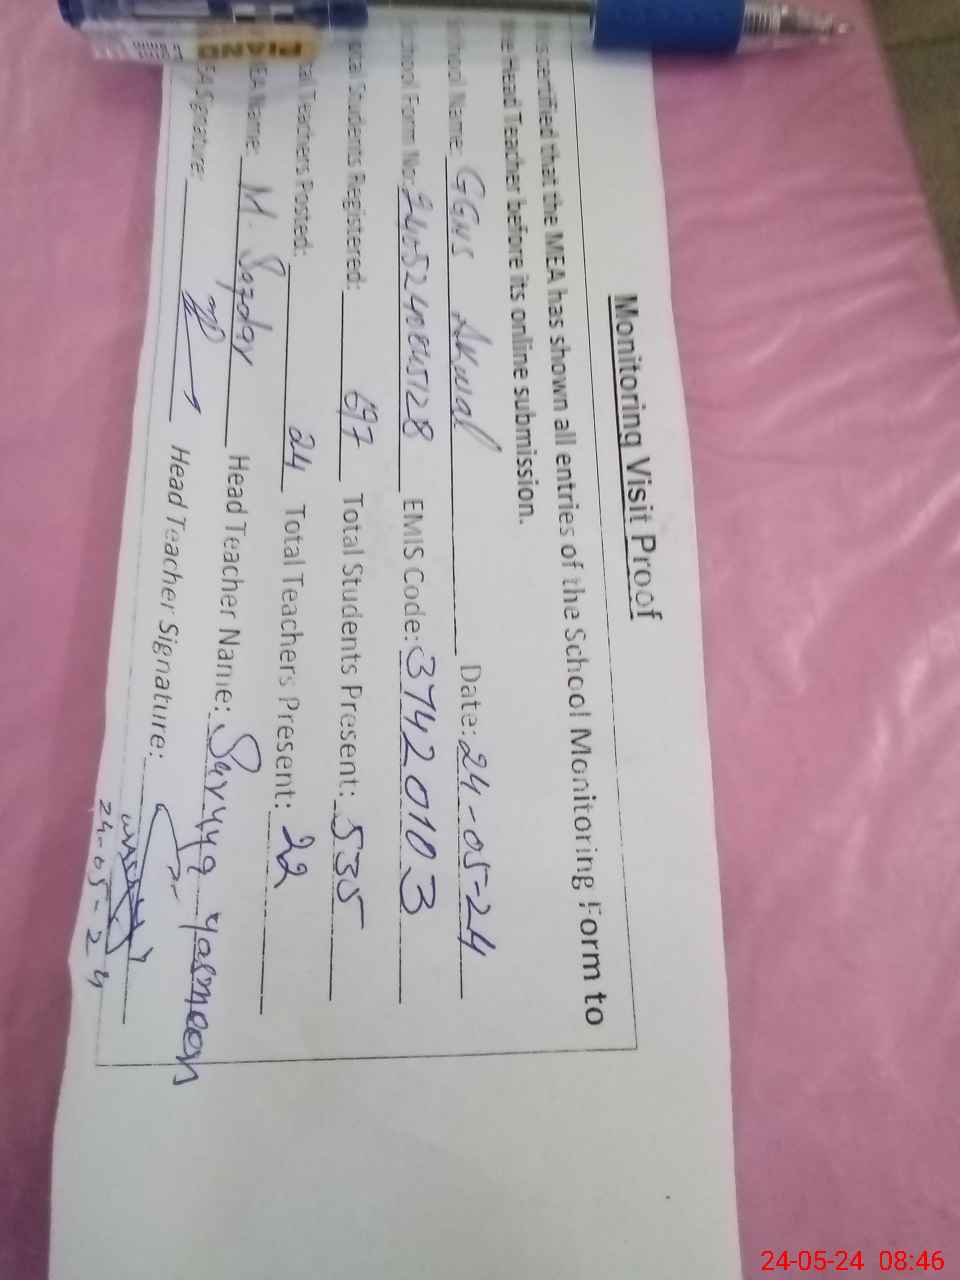 Monitoring Visit Proof
certified that the MEA has shown all entries of the School Monitoring Form to
the Head Teacher before its online submission.
School Name: GGHS Akwal Date: 24-05-24
School Form No: EMIS Code: 37420103
Total Students Registered: 697 Total Students Present: 535
Total Teachers Posted: 24 Total Teachers Present: 22
MEA Name: M. Safdar Head Teacher Name: Suryya Yasmeen
EA Signature: Head Teacher Signature:
24-05-24
PIANO
24-05-24 08:46